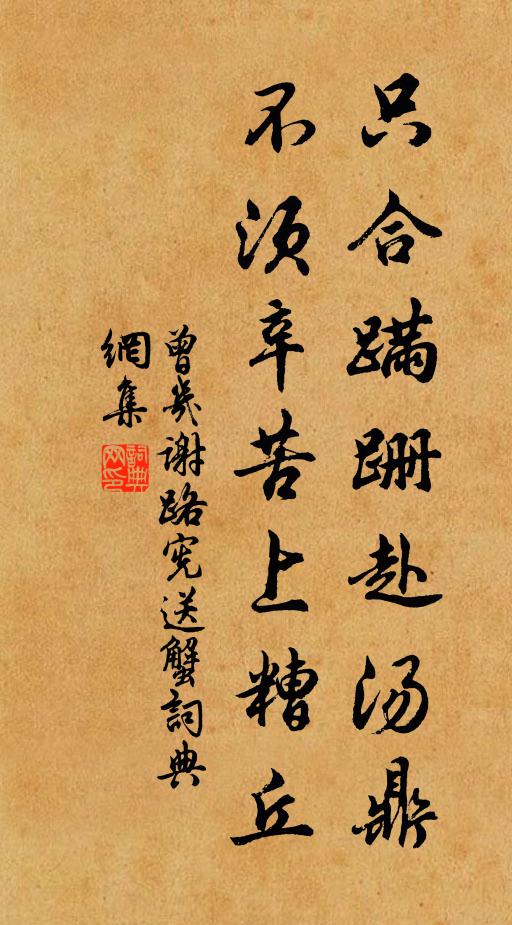 只合蹒跚赴汤鼎
不须辛苦上糟丘
曾几谢路宪送蟹詞典
網集
詞典
网印